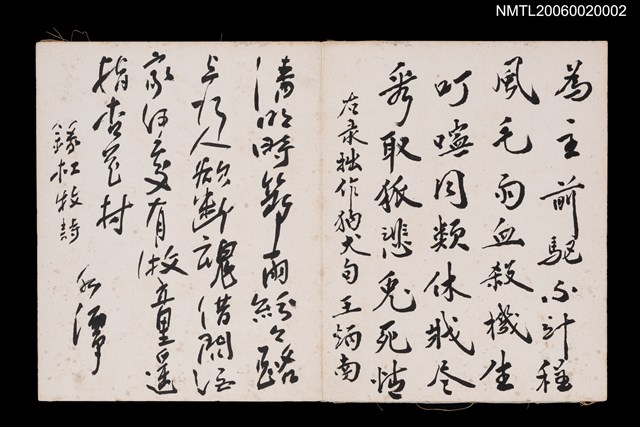 NMTL20060020002
為主前驅不計程
風毛雨血殺機生
叮嚀同類休戕尽
看取狐悲兔死情
右录拙作猎犬句王炳南
清明時節雨紛々路
上行人欲断魂借問酒
家何處有牧童遥
指杏花村
錄杜牧詩
潭